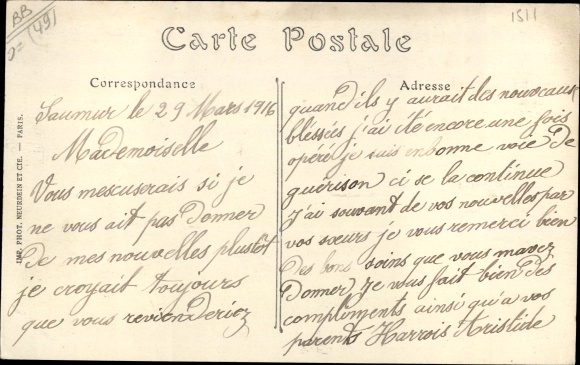 BB
(49)
1511
Carte Postale
Correspondance
Saumur le 29 Mars 1916
Mademoiselle
Vous mescuserais si je
ne vous ait pas donner
de mes nouvelles plustôt
je croyait toujours
que vous reviendériez
Adresse
quand ils y aurait des nouveaux
bléssés j'ai été encore une fois
opéré je suis en bonne voie de
guérison ci se la continue
j'ai souvant de vos nouvelles par
vos sœurs je vous remerci bien
des bons soins que vous mavez
donner je vous fait bien des
compliments ainsi qu'a vos
parents Harrois Aristide
IMP. PHOT. NEURDEIN ET CIE. — PARIS.